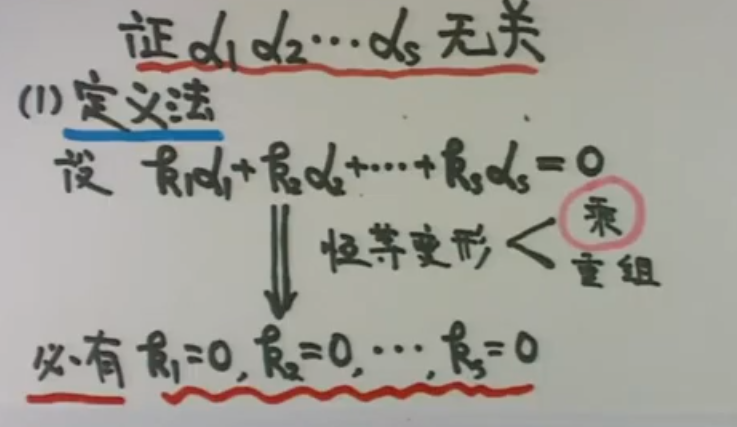 证 α₁ α₂ ⋯ αₛ 无关
(1) 定义法
设 k₁α₁+k₂α₂+⋯+kₛαₛ=0
恒等变形 < 乘
重组
必有 k₁=0, k₂=0, ⋯, kₛ=0